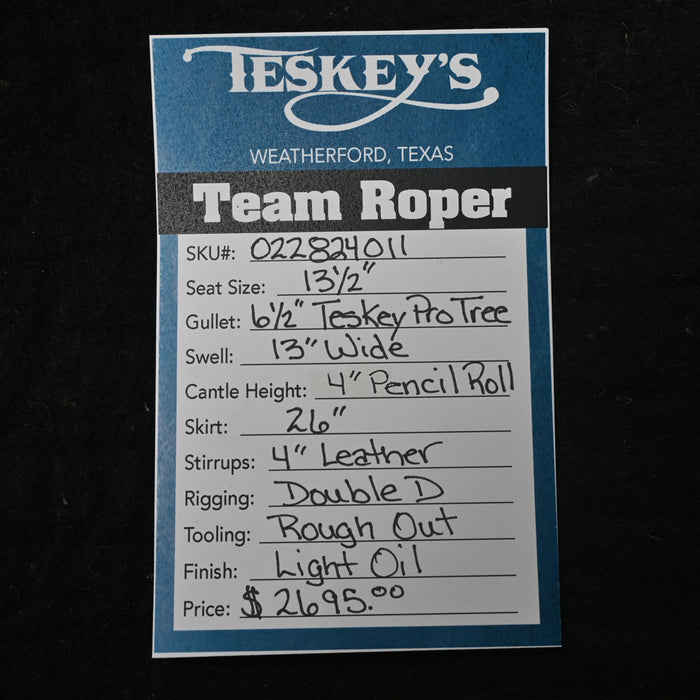 TESKEY'S
WEATHERFORD, TEXAS
Team Roper
SKU#: 022824011
Seat Size: 13 1/2"
Gullet: 6 1/2" Teskey Pro Tree
Swell: 13" Wide
Cantle Height: 4" Pencil Roll
Skirt: 26"
Stirrups: 4" Leather
Rigging: Double D
Tooling: Rough Out
Finish: Light Oil
Price: $2695.00